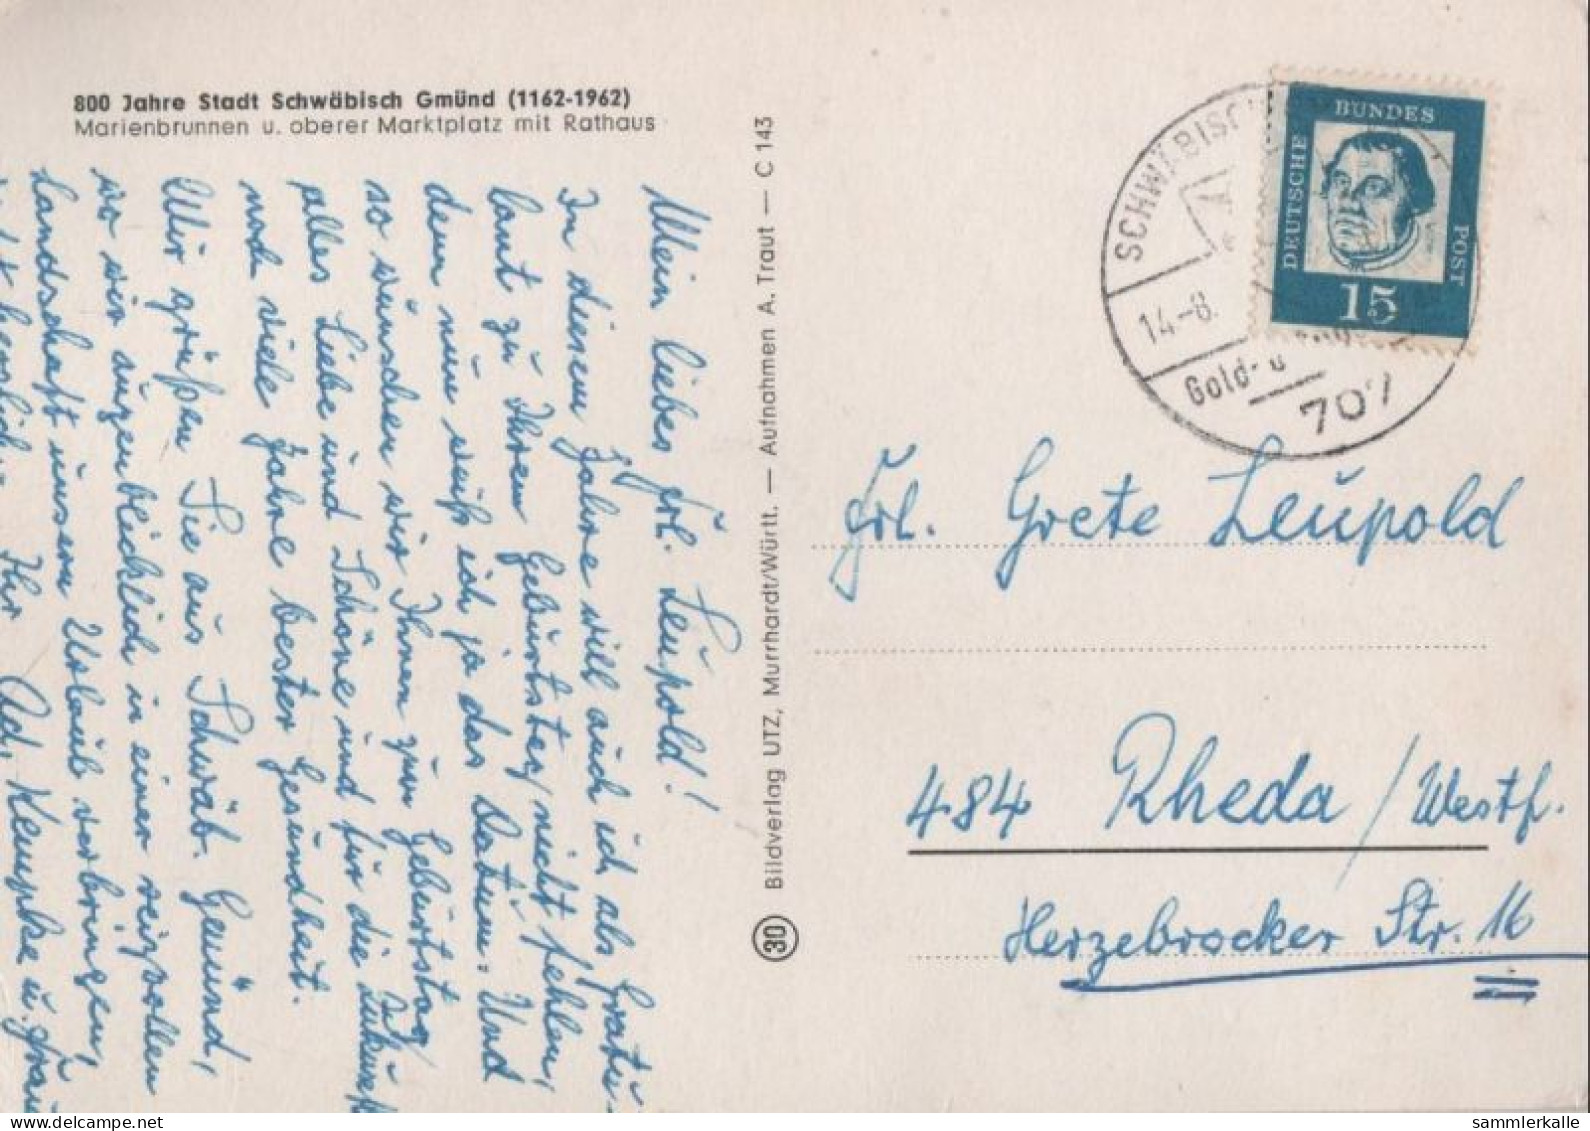 800 Jahre Stadt Schwäbisch Gmünd (1162-1962)
Marienbrunnen u. oberer Marktplatz mit Rathaus
Mein liebes Frl. Leupold!
In diesem Jahre will auch ich als Gratu-
lant zu Ihrem Geburtstag nicht fehlen,
denn nun weiß ich ja das Datum. Und
so wünschen wir Ihnen zum Geburtstag
alles Liebe und Schöne und für die Zukunft
noch viele Jahre bester Gesundheit.
Wir grüßen Sie aus Schwäb. Gmünd,
wo wir augenblicklich in einer reizvollen
Landschaft unsern Urlaub verbringen,
herzlich Ihr Ad. Kempke u. Frau
Bildverlag UTZ, Murrhardt/Württ. — Aufnahmen A. Traut — C 143
30
SCHWÄBISC
14-8.
Gold- u
707
DEUTSCHE
BUNDES
POST
15
Frl. Grete Leupold
484 Rheda / Westf.
Herzebrocker Str. 16
sammlerkalle